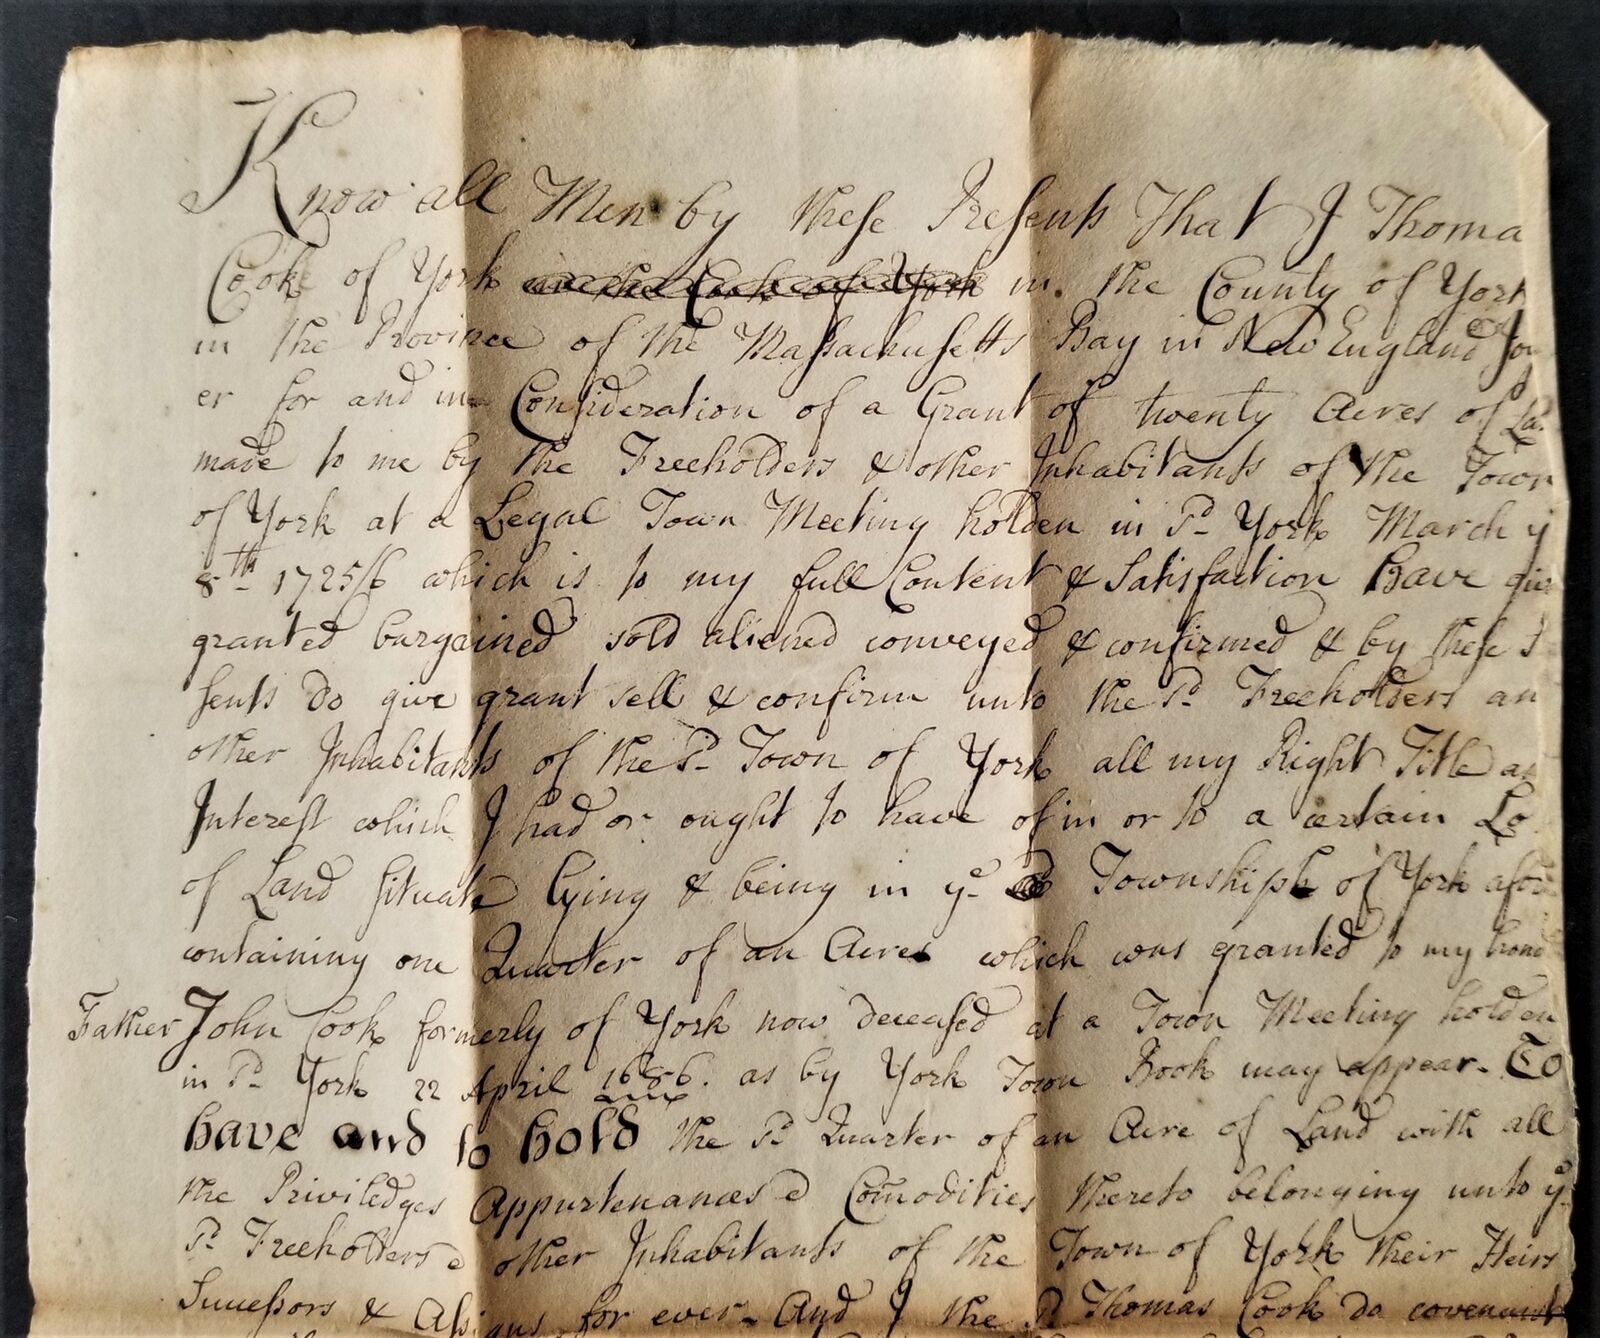 Know all Men by these Presents That I Thoma
Cook of York in the County of York
in the Province of the Massachusetts Bay in New England Joy
er for and in Consideration of a Grant of twenty Acres of La
made to me by the Freeholders & other Inhabitants of the Town
of York at a Legal Town Meeting holden in sd York March y
8th 1725/6 which is to my full Content & Satisfaction Have give
granted bargained sold aliened conveyed & confirmed & by these P
sents do give grant sell & confirm unto the sd Freeholders an
other Inhabitants of the sd Town of York all my Right Title an
Interest which I had or ought to have of in or to a certain Lo
of Land situate lying & being in ye Township of York afor
containing one Quarter of an Acre which was granted to my hond
Father John Cook formerly of York now deceased at a Town Meeting holden
in sd York 22 April 1686. as by York Town Book may appear. To
have and to hold the sd Quarter of an Acre of Land with all
the Priviledges Appurtenances & Comodities thereto belonging unto ye
sd Freeholders & other Inhabitants of the Town of York their Heirs
Successors & Assigns for ever. And I the sd Thomas Cook do covenant